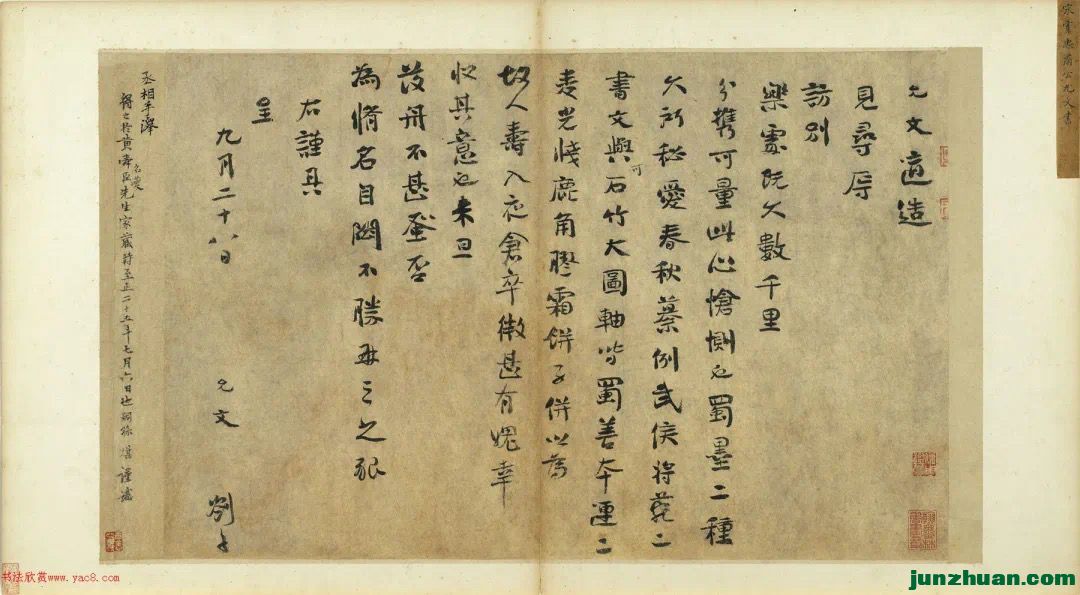 宋虞忠肅公允文書
允文適造
見尋辱
訪別
樂處既久數千里
分攜可量此心愴惻也蜀墨二種
久所秘愛春秋纂例武侯將苑二
書文與可石竹大圖軸皆蜀善本運二
麦光牋鹿角膠霜餅子併以為
故人壽入夜倉卒微甚有媿幸
收其意也来旦
發舟不甚蚤否
為脩名自閟不勝再三之
右謹具
呈
九月二十八日 允文 劄子
丞相手澤
得之於黃舜臣先生家藏時至正二十五年七月六日也嗣孫堪謹
名蒙
书法欣赏www.yac8.com
junzhuan.com